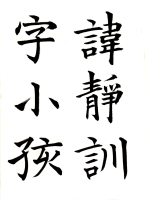 諱靜訓
字小孩